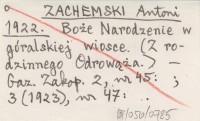 ZACHEMSKI Antoni
1922. Boże Narodzenie w
góralskiej wiosce. (Z ro-
dzinnego Odrowąża.) —
Gaz. Zakop. 2, nr 45: ;
3 (1923), nr 47: ..
III/050/0785